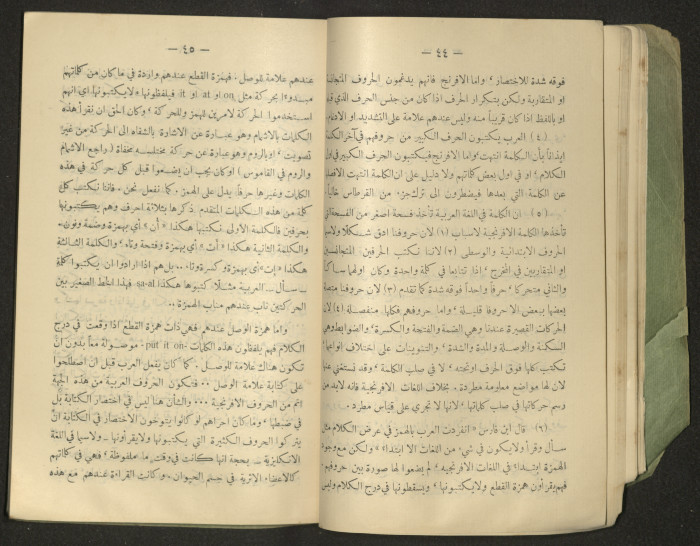 — ٤٤ —
فوقه شدة للاختصار ؛ واما الافرنج فانهم يدغمون الحروف المتجانسة
او المتقاربة ولكن بتكرار الحرف اذا كان من جنس الحرف الذي قبله
او بالفظ اذا كان قريباً منه وليس عندهم علامة على التشديد او الادغام
(٤) العرب يكتبون الحرف الكبير من حروفهم في آخر الكلمة
ايذاناً بأن الكلمة انتهت ؛ واما الافرنج فيكتبون الحرف الكبير في اول
الكلام ؛ او في اول بعض كلماتهم ولا دليل على ان الكلمة انتهت
عن الكلمة التي بعدها فيضطرون الى ترك جزء من القرطاس خالياً
(٥) ان الكلمة في اللغة العربية تأخذ فسحة اصغر من الفسحة التي
تأخذها الكلمة الافرنجية لاسباب (١) لان حروفنا ادق شكلاً ولاسيما
الحروف الابتدائية والوسطى (٢) لاننا نكتب الحرفين المتجانسين
او المتقاربين في المخرج ؛ اذا تتابعا في كلمة واحدة وكان اولهما ساكناً
والثاني متحركاً ؛ حرفاً واحداً فوقه شدة كما تقدم (٣) لان حروفنا متصلة
بعضها ببعض الا حروفا قليلة ؛ واما حروفهم فكلها منفصلة (٤) لان
الحركات القصيرة عندنا وهي الضمة والفتحة والكسرة ؛ والضوابط وهي
السكنة والوصلة والمدة والشدة ؛ والتنوينات على اختلاف انواعها ؛
تكتب كلها فوق الحرف او تحته ؛ لا في صلب الكلمة ؛ وقد نستغني عنها
لان لها مواضع معلومة مطردة . بخلاف اللغات الافرنجية فانه لا بد من
رسم حركاتها في صلب كلماتها ؛ لانها لا تجري على قياس مطرد .
(٦) قال ابن فارس « انفردت العرب بالهمز في عرض الكلام مثل
سأل وقرأ ولا يكون في شيء من اللغات الا ابتداءً » ولكن مع وجود
الهمزة ابتداءً في اللغات الافرنجية ؛ لم يضعوا لها صورة بين حروفهم
فهم يقرأون همزة القطع ولا يكتبونها ؛ ويسقطونها في درج الكلام وليس
— ٤٥ —
عندهم علامة للوصل . فهمزة القطع عندهم واردة في ما كان من كلماتهم
مبدوءاً بحركة مثل on او at او it فيلفظونها ؛ لا يكتبونها اي انهم
استخدموا الحركة لامرين للهمز وللحركة ؛ وكان الحق ان نقرأ هذه
الكلمات بالاشمام وهو عبارة عن الاشارة بالشفاه الى الحركة من غير
تصويت ؛ او بالروم وهو عبارة عن حركة مختلسة مخفاة ( راجع الاشمام
والروم في القاموس ) او كان يجب ان يضعوا قبل كل حركة في هذه
الكلمات وغيرها حرفاً يدل على الهمز . كما نفعل نحن . فاننا نكتب كل
كلمة من هذه الكلمات المتقدم ذكرها بثلاثة احرف وهم يكتبونها
بحرفين فالكلمة الاولى نكتبها هكذا « أُن » أي بهمزة وضمة ونون .
والكلمة الثانية هكذا « أَت » أي بهمزة وفتحة وتاء ؛ والكلمة الثالثة
هكذا « إِت » أي بهمزة وكسرة وتاء .. بل هم اذا ارادوا ان يكتبوا كلمة
— سأل — العربية مثلاً كتبوها هكذا sa-al فهذا الخط الصغير بين
الحركتين ناب عندهم مناب الهمزة ..
واما همزة الوصل عندهم فهي ذات همزة القطع اذا وقعت في درج
الكلام فهم يلفظون هذه الكلمات -put it on- موصولة معاً بدون ان
تكون هناك علامة للوصل . كما كان يفعل العرب قبل ان اصطلحوا
على كتابة علامة الوصل .. فتكون الحروف العربية من هذه الجهة
اتم من الحروف الافرنجية ... والشأن هنا ليس في اختصار الكتابة بل
في ضبطها ؛ وما كان احراهم لو كانوا يتوخون الاختصار في الكتابة ان
يتركوا الحروف الكثيرة التي يكتبونها ولا يقرأونها . ولاسيما في اللغة
الانكليزية — بحجة انها كانت في وقت ما ملفوظة ؛ فهي في كلماتهم
كالاعضاء الاثرية في جسم الحيوان . وكانت القراءة عندهم مع هذه